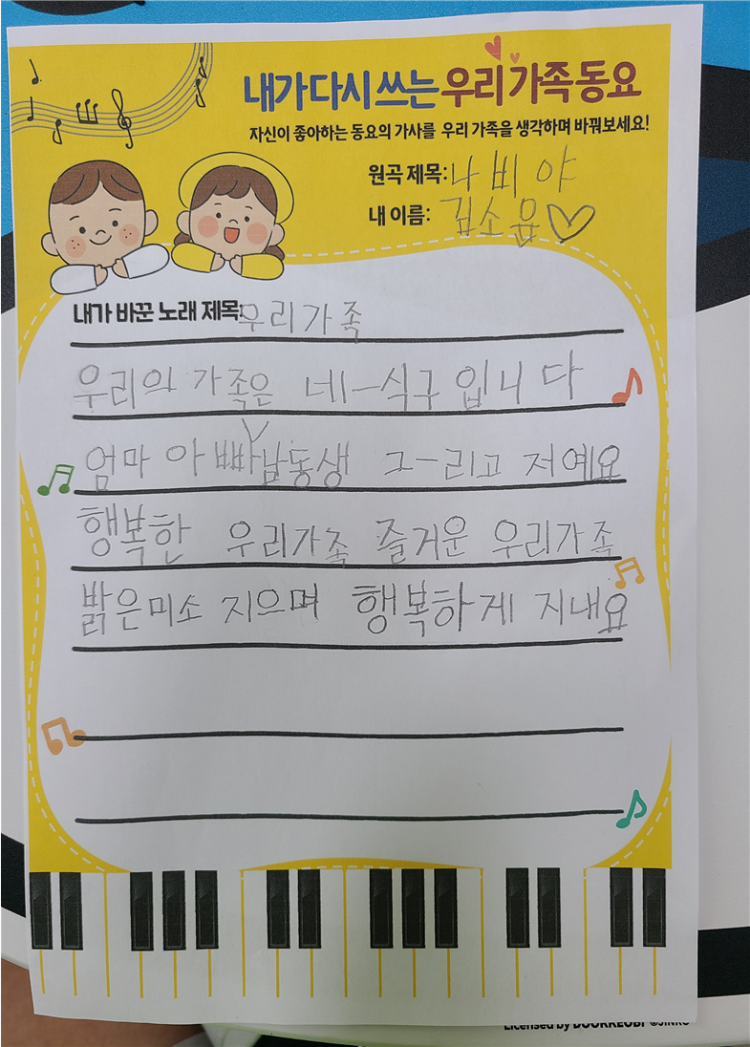 내가 다시 쓰는 우리 가족 동요
자신이 좋아하는 동요의 가사를 우리 가족을 생각하며 바꿔보세요!
원곡 제목: 나비야
내 이름: 김소윤♡
내가 바꾼 노래 제목: 우리가족
우리의 가족은 네ㅡ식구 입니다
엄마 아빠∨남동생 그ㅡ리고 저예요
행복한 우리가족 즐거운 우리가족
밝은미소 지으며 행복하게 지내요
Licensed by DOORREOBI ©JINKO